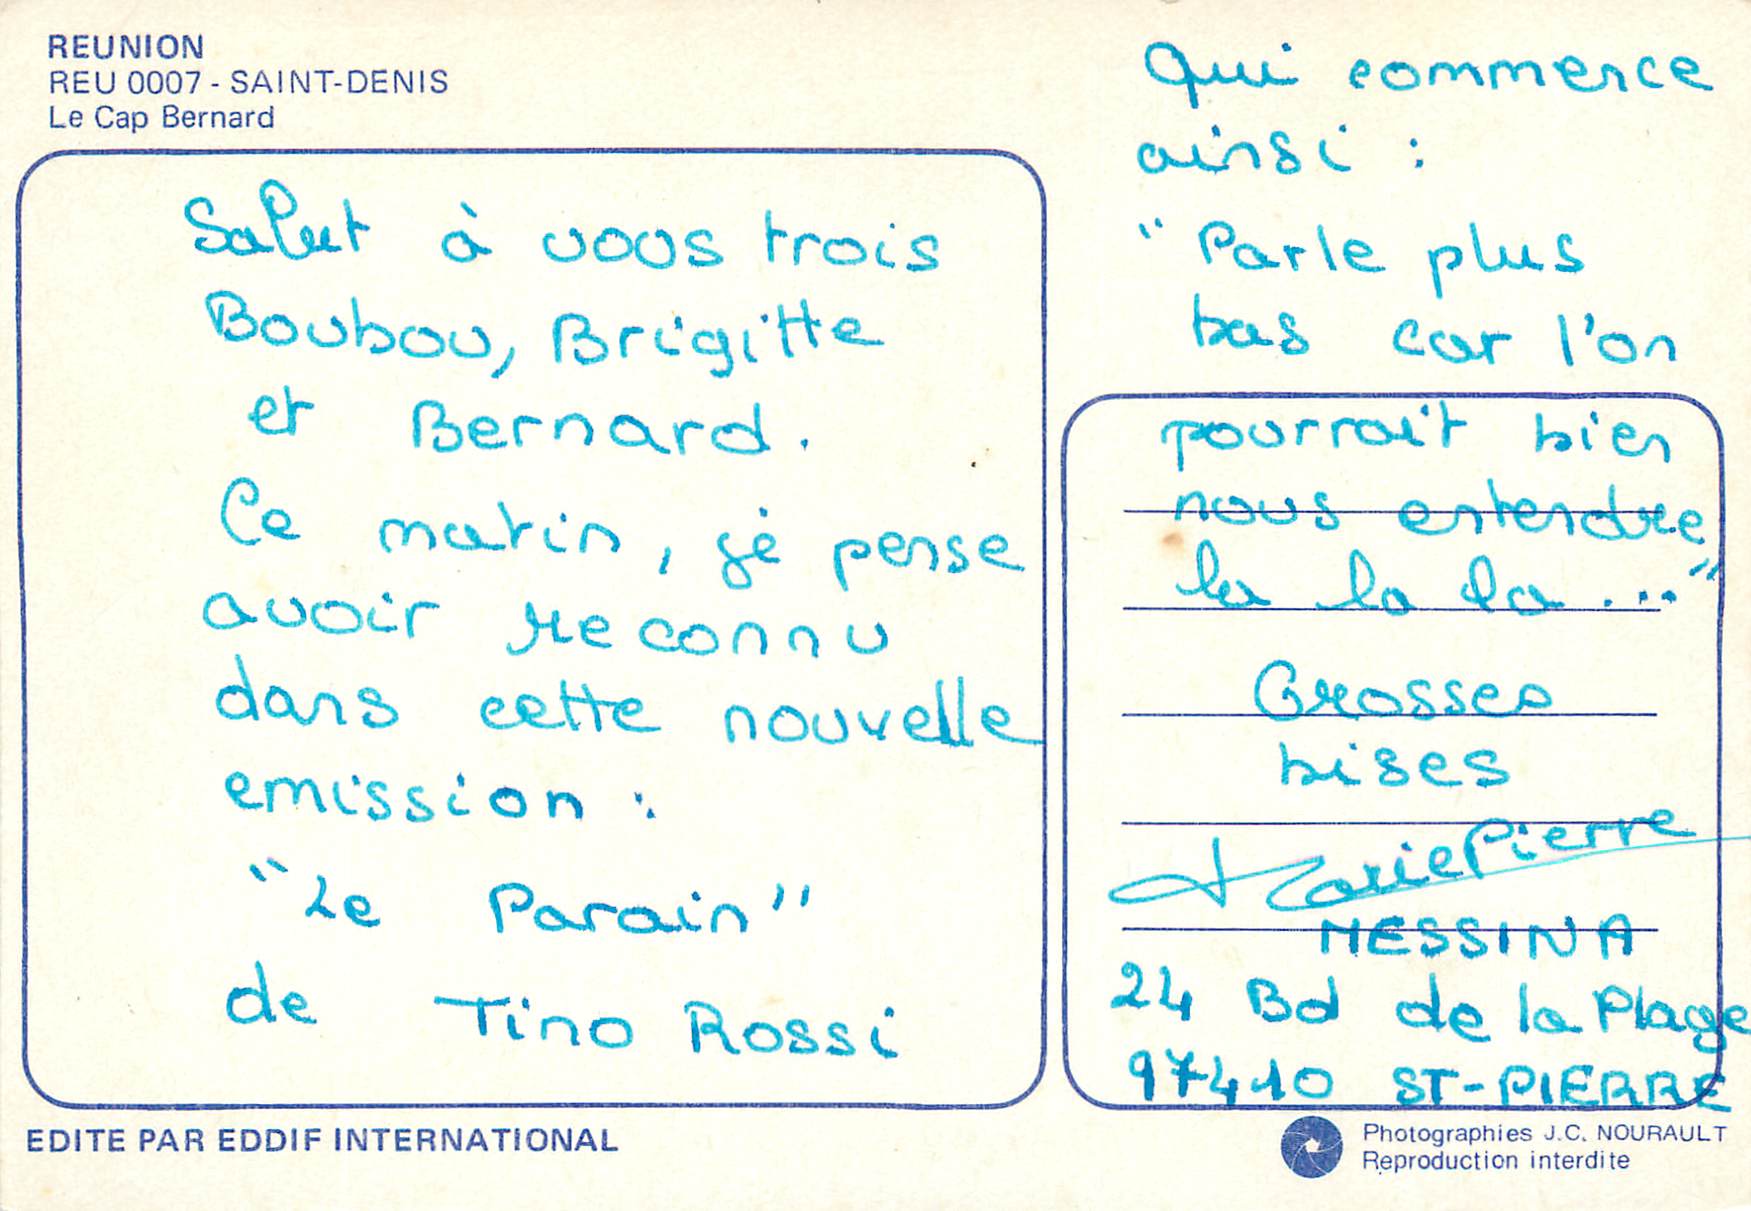 REUNION
REU 0007 - SAINT-DENIS
Le Cap Bernard
Salut à vous trois
Boubou, Brigitte
et Bernard.
Ce matin, je pense
avoir reconnu
dans cette nouvelle
emission :
"Le Parain"
de Tino Rossi
EDITE PAR EDDIF INTERNATIONAL
Qui commence
ainsi :
"Parle plus
bas car l'on
pourrait bien
nous entendre
la la la ..."
Grosses
bises
Marie Pierre
MESSINA
24 Bd de la Plage
97410 ST-PIERRE
Photographies J.C. NOURAULT
Reproduction interdite